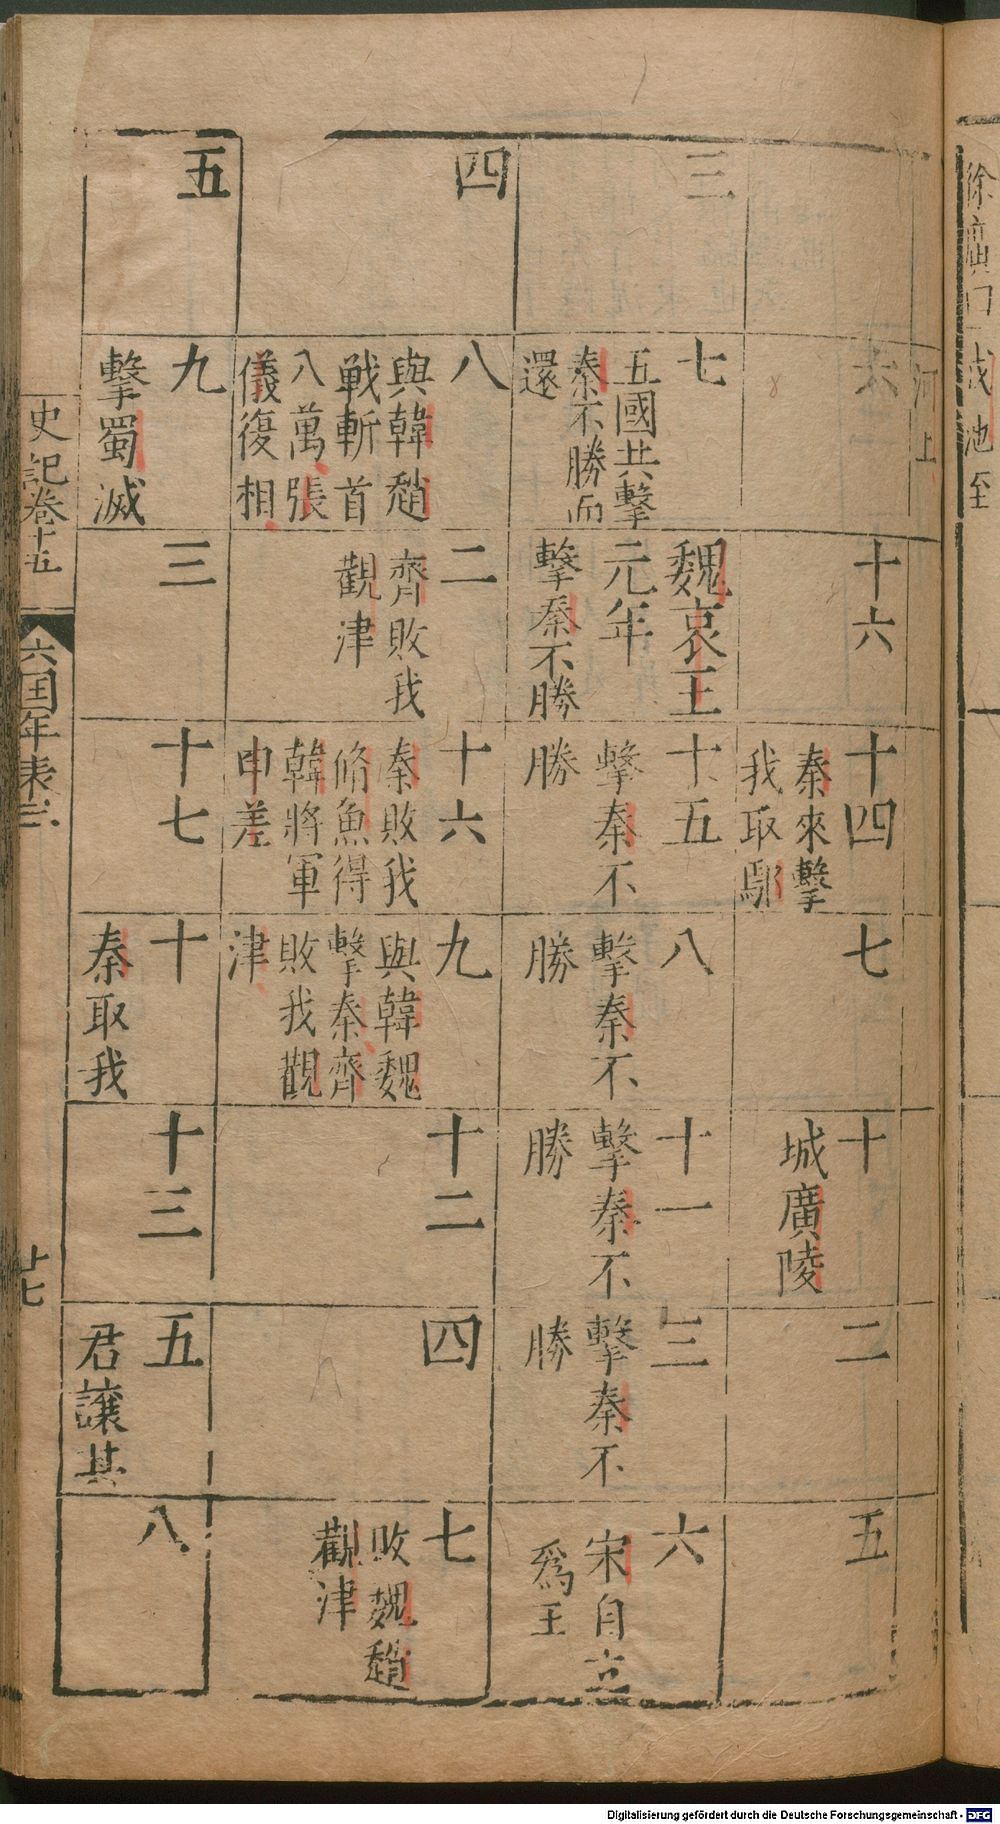 徐廣曰戎池至
河上
六
十六
十四
秦來擊
我取鄢
七
十
城廣陵
二
五
三
七
五國共擊
秦不勝而
還
魏哀王
元年
擊秦不勝
十五
擊秦不
勝
八
擊秦不
勝
十一
擊秦不
勝
三
擊秦不
勝
六
宋自立
爲王
四
八
與韓趙
戰斬首
八萬張
儀復相
二
齊敗我
觀津
十六
秦敗我
脩魚得
韓將軍
申差
九
與韓魏
擊秦齊
敗我觀
津
十二
四
七
敗魏趙
觀津
五
九
擊蜀滅
三
十七
十
秦取我
十三
五
君讓其
八
史記卷十五
六国年表三
廿七
Digitalisierung gefördert durch die Deutsche Forschungsgemeinschaft - DFG